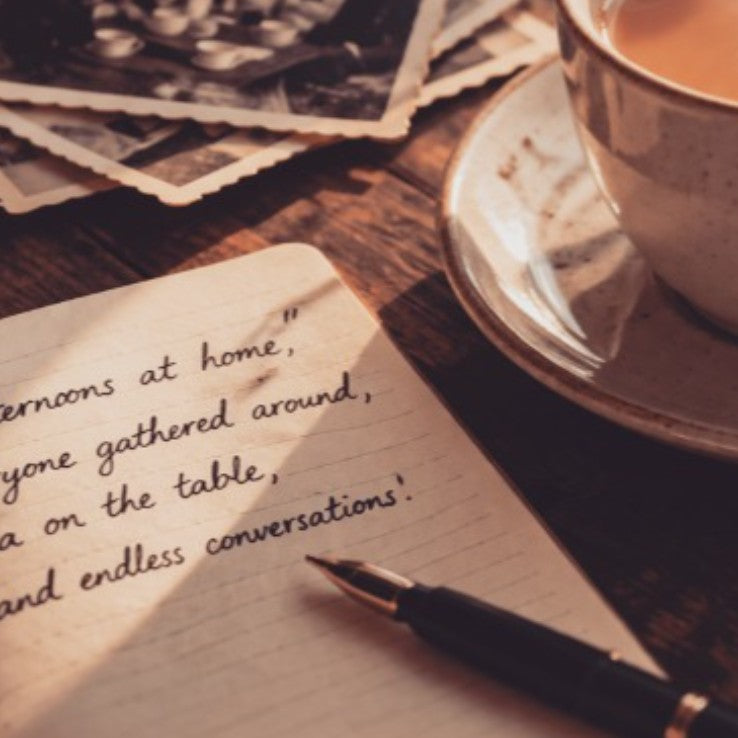 ernoons at home,"
yone gathered around,
a on the table,
and endless conversations'.